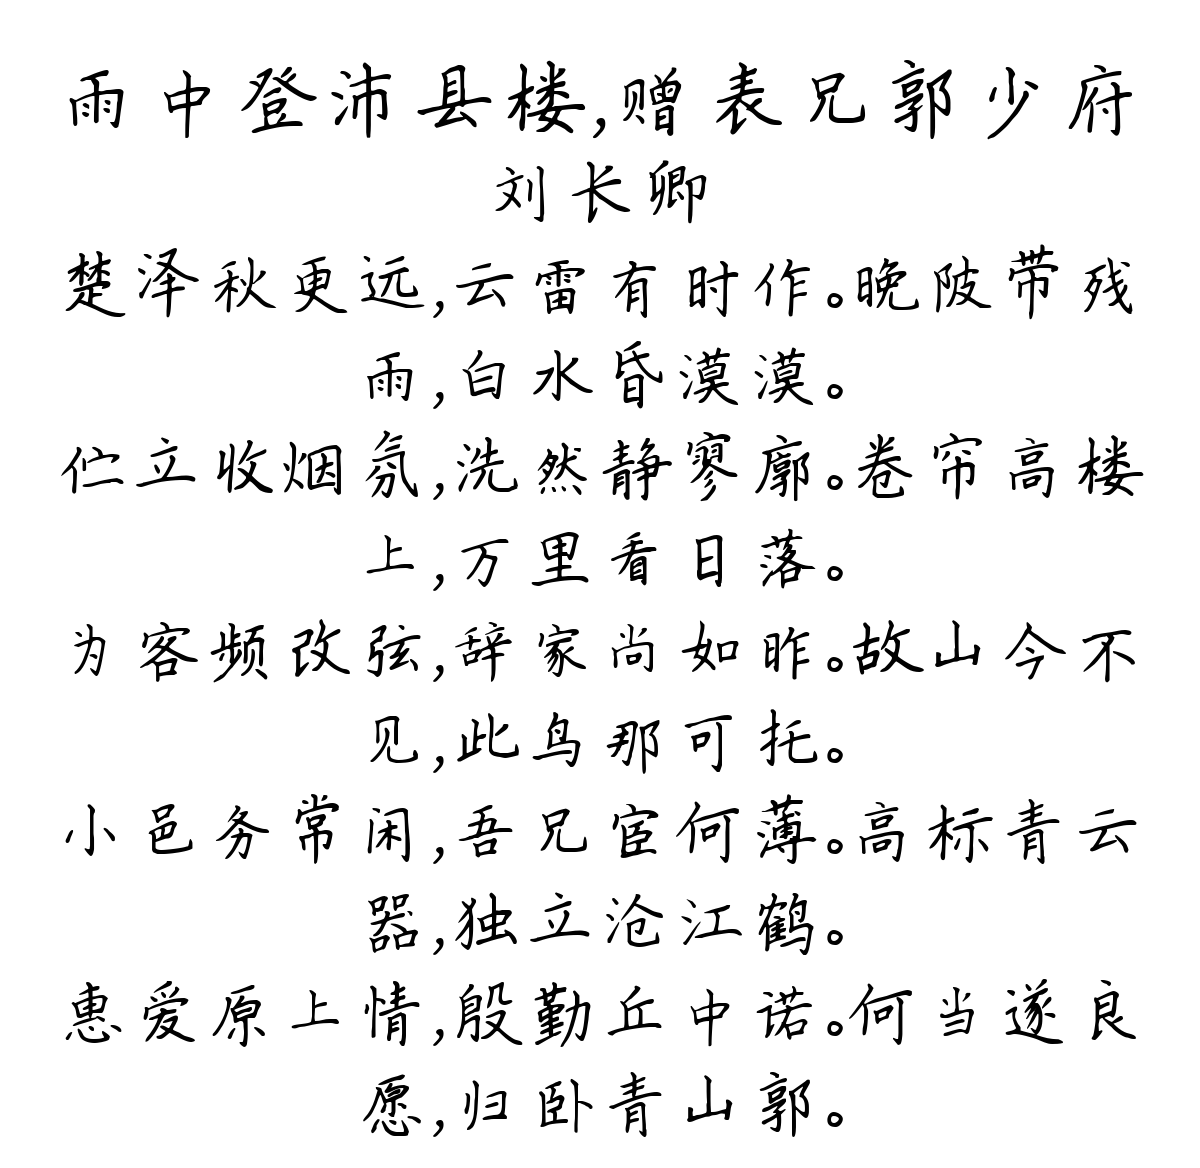 雨中登沛县楼,赠表兄郭少府
刘长卿
楚泽秋更远,云雷有时作。晚陂带残
雨,白水昏漠漠。
伫立收烟氛,洗然静寥廓。卷帘高楼
上,万里看日落。
为客频改弦,辞家尚如昨。故山今不
见,此鸟那可托。
小邑务常闲,吾兄宦何薄。高标青云
器,独立沧江鹤。
惠爱原上情,殷勤丘中诺。何当遂良
愿,归卧青山郭。